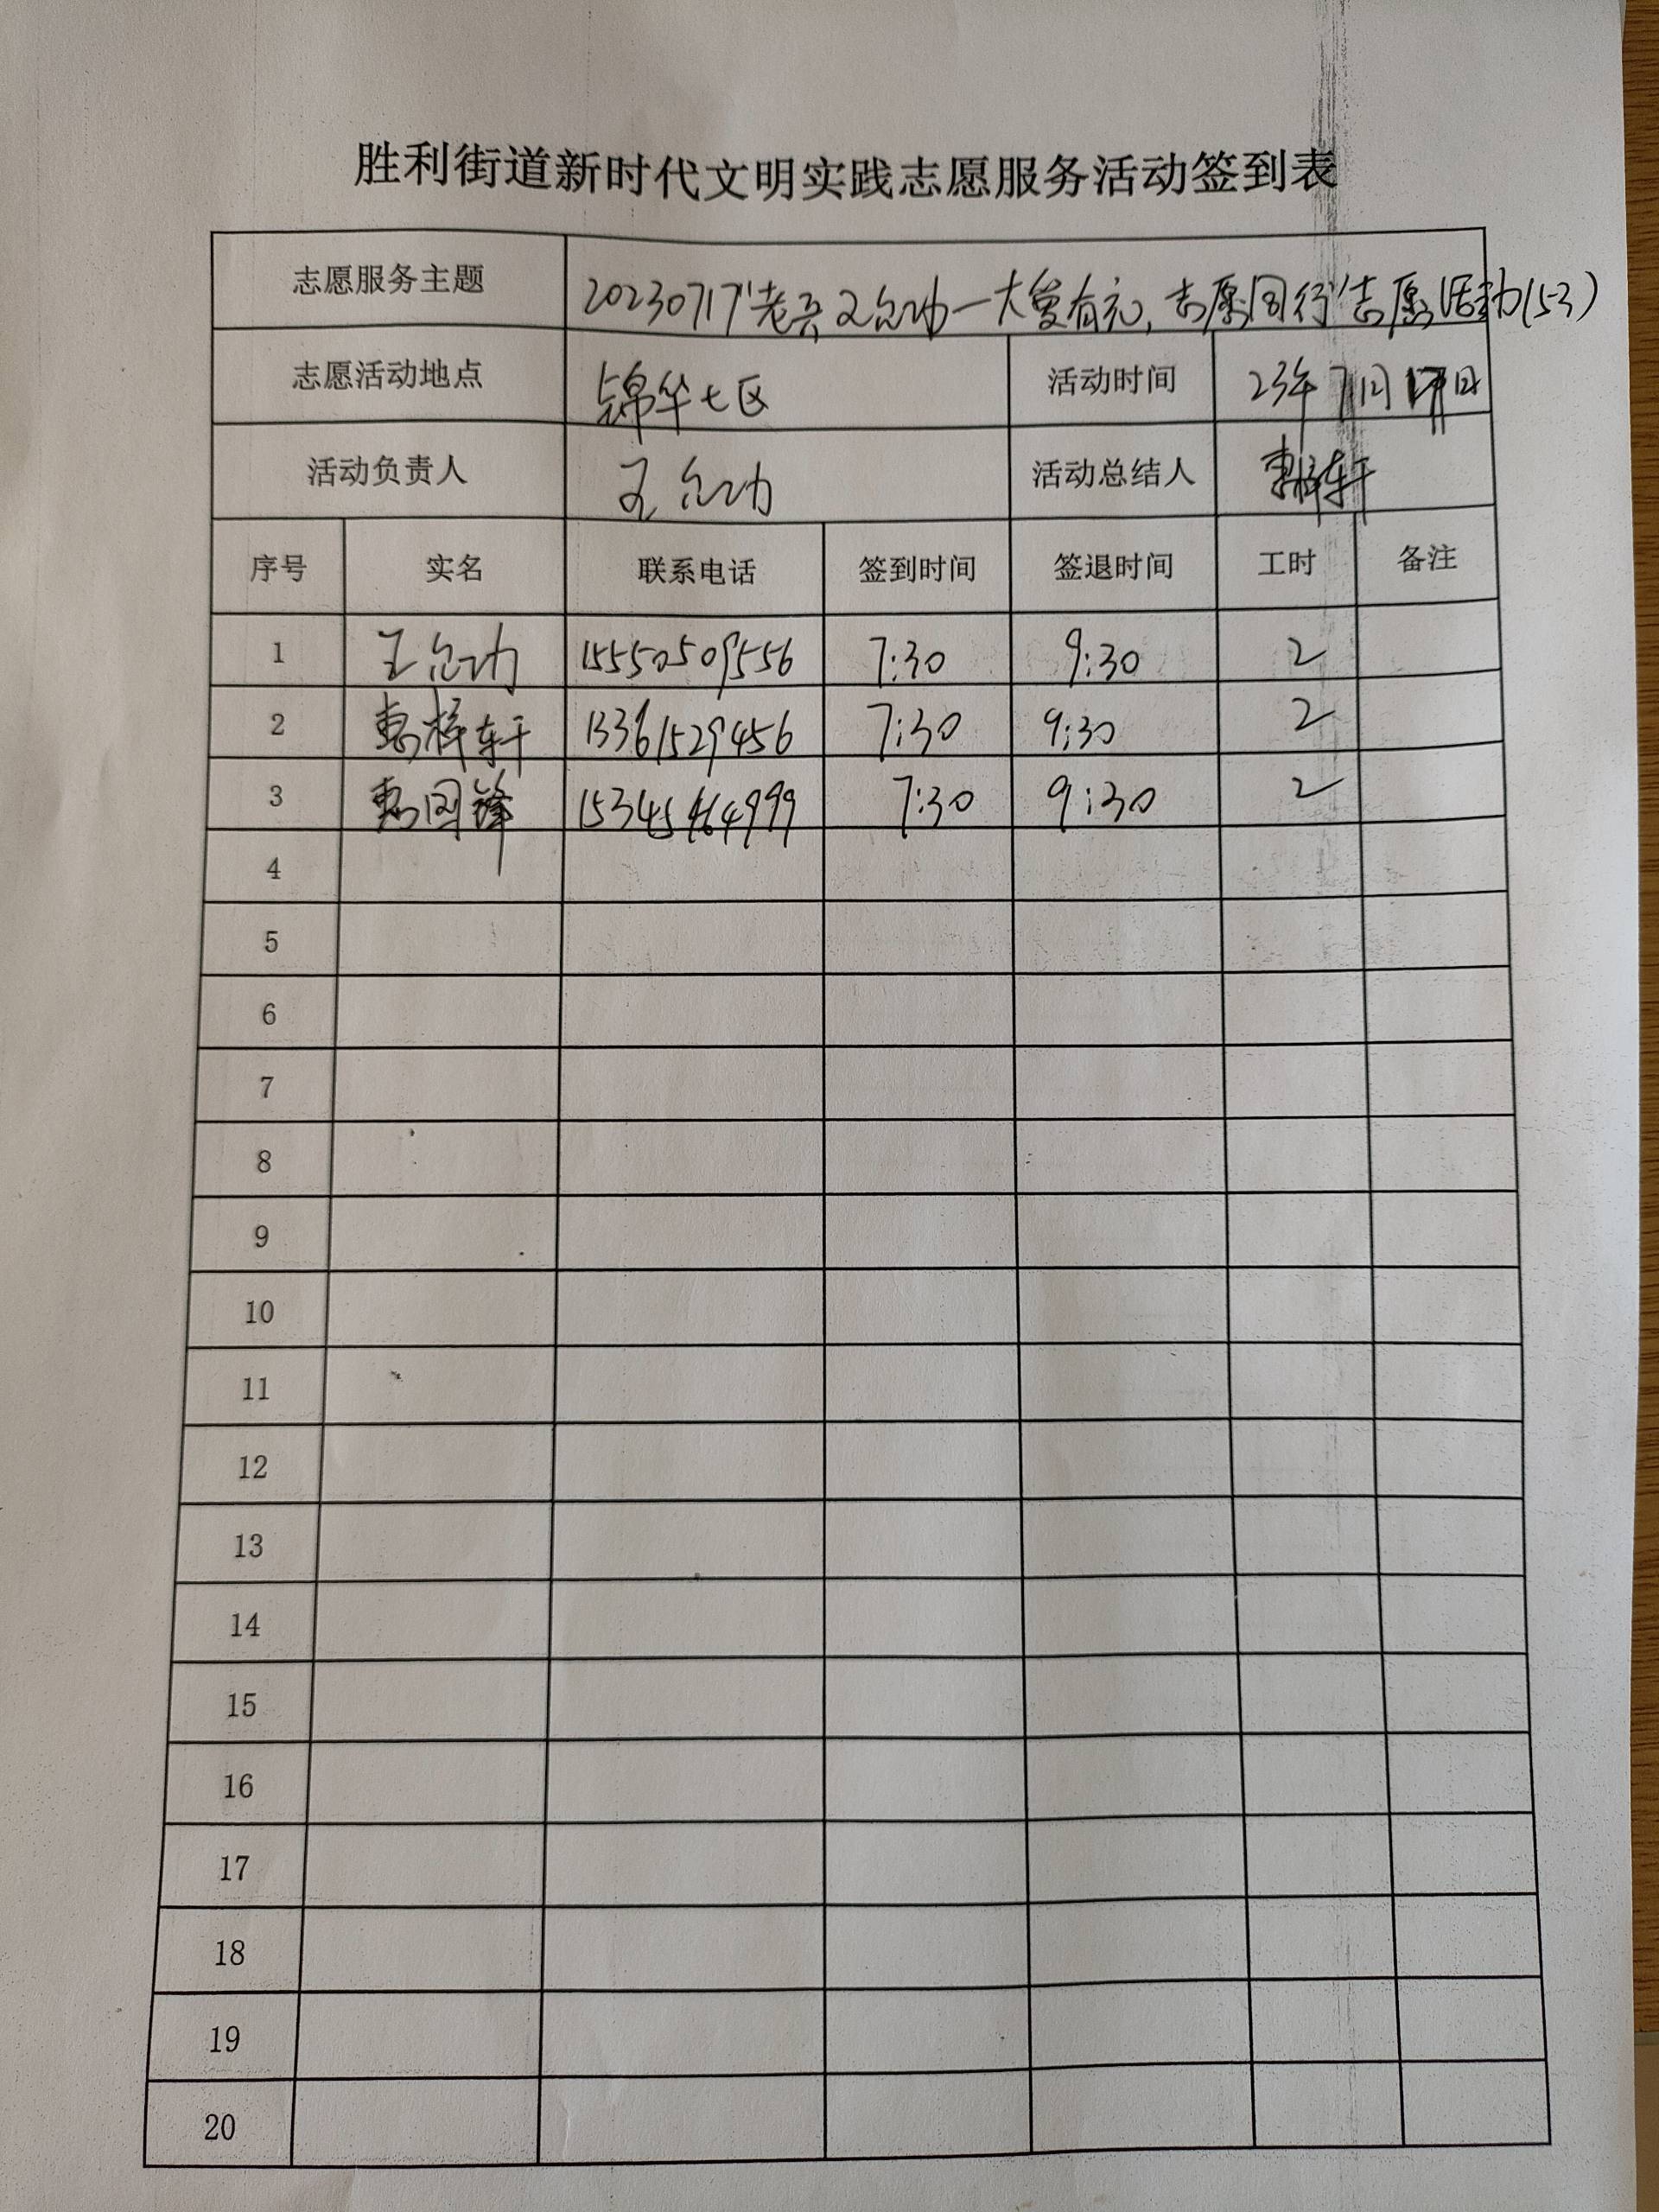 胜利街道新时代文明实践志愿服务活动签到表
志愿服务主题 20230717"老兵王 功一大爱有元,志愿同行"志愿活动(53)
志愿活动地点 锦华七区 活动时间 23年7月17日
活动负责人 王 功 活动总结人 惠梓轩
序号 实名 联系电话 签到时间 签退时间 工时 备注
1 王 功 15550509556 7:30 9:30 2
2 惠梓轩 13361529456 7:30 9:30 2
3 惠国锋 15345464999 7:30 9:30 2
4
5
6
7
8
9
10
11
12
13
14
15
16
17
18
19
20